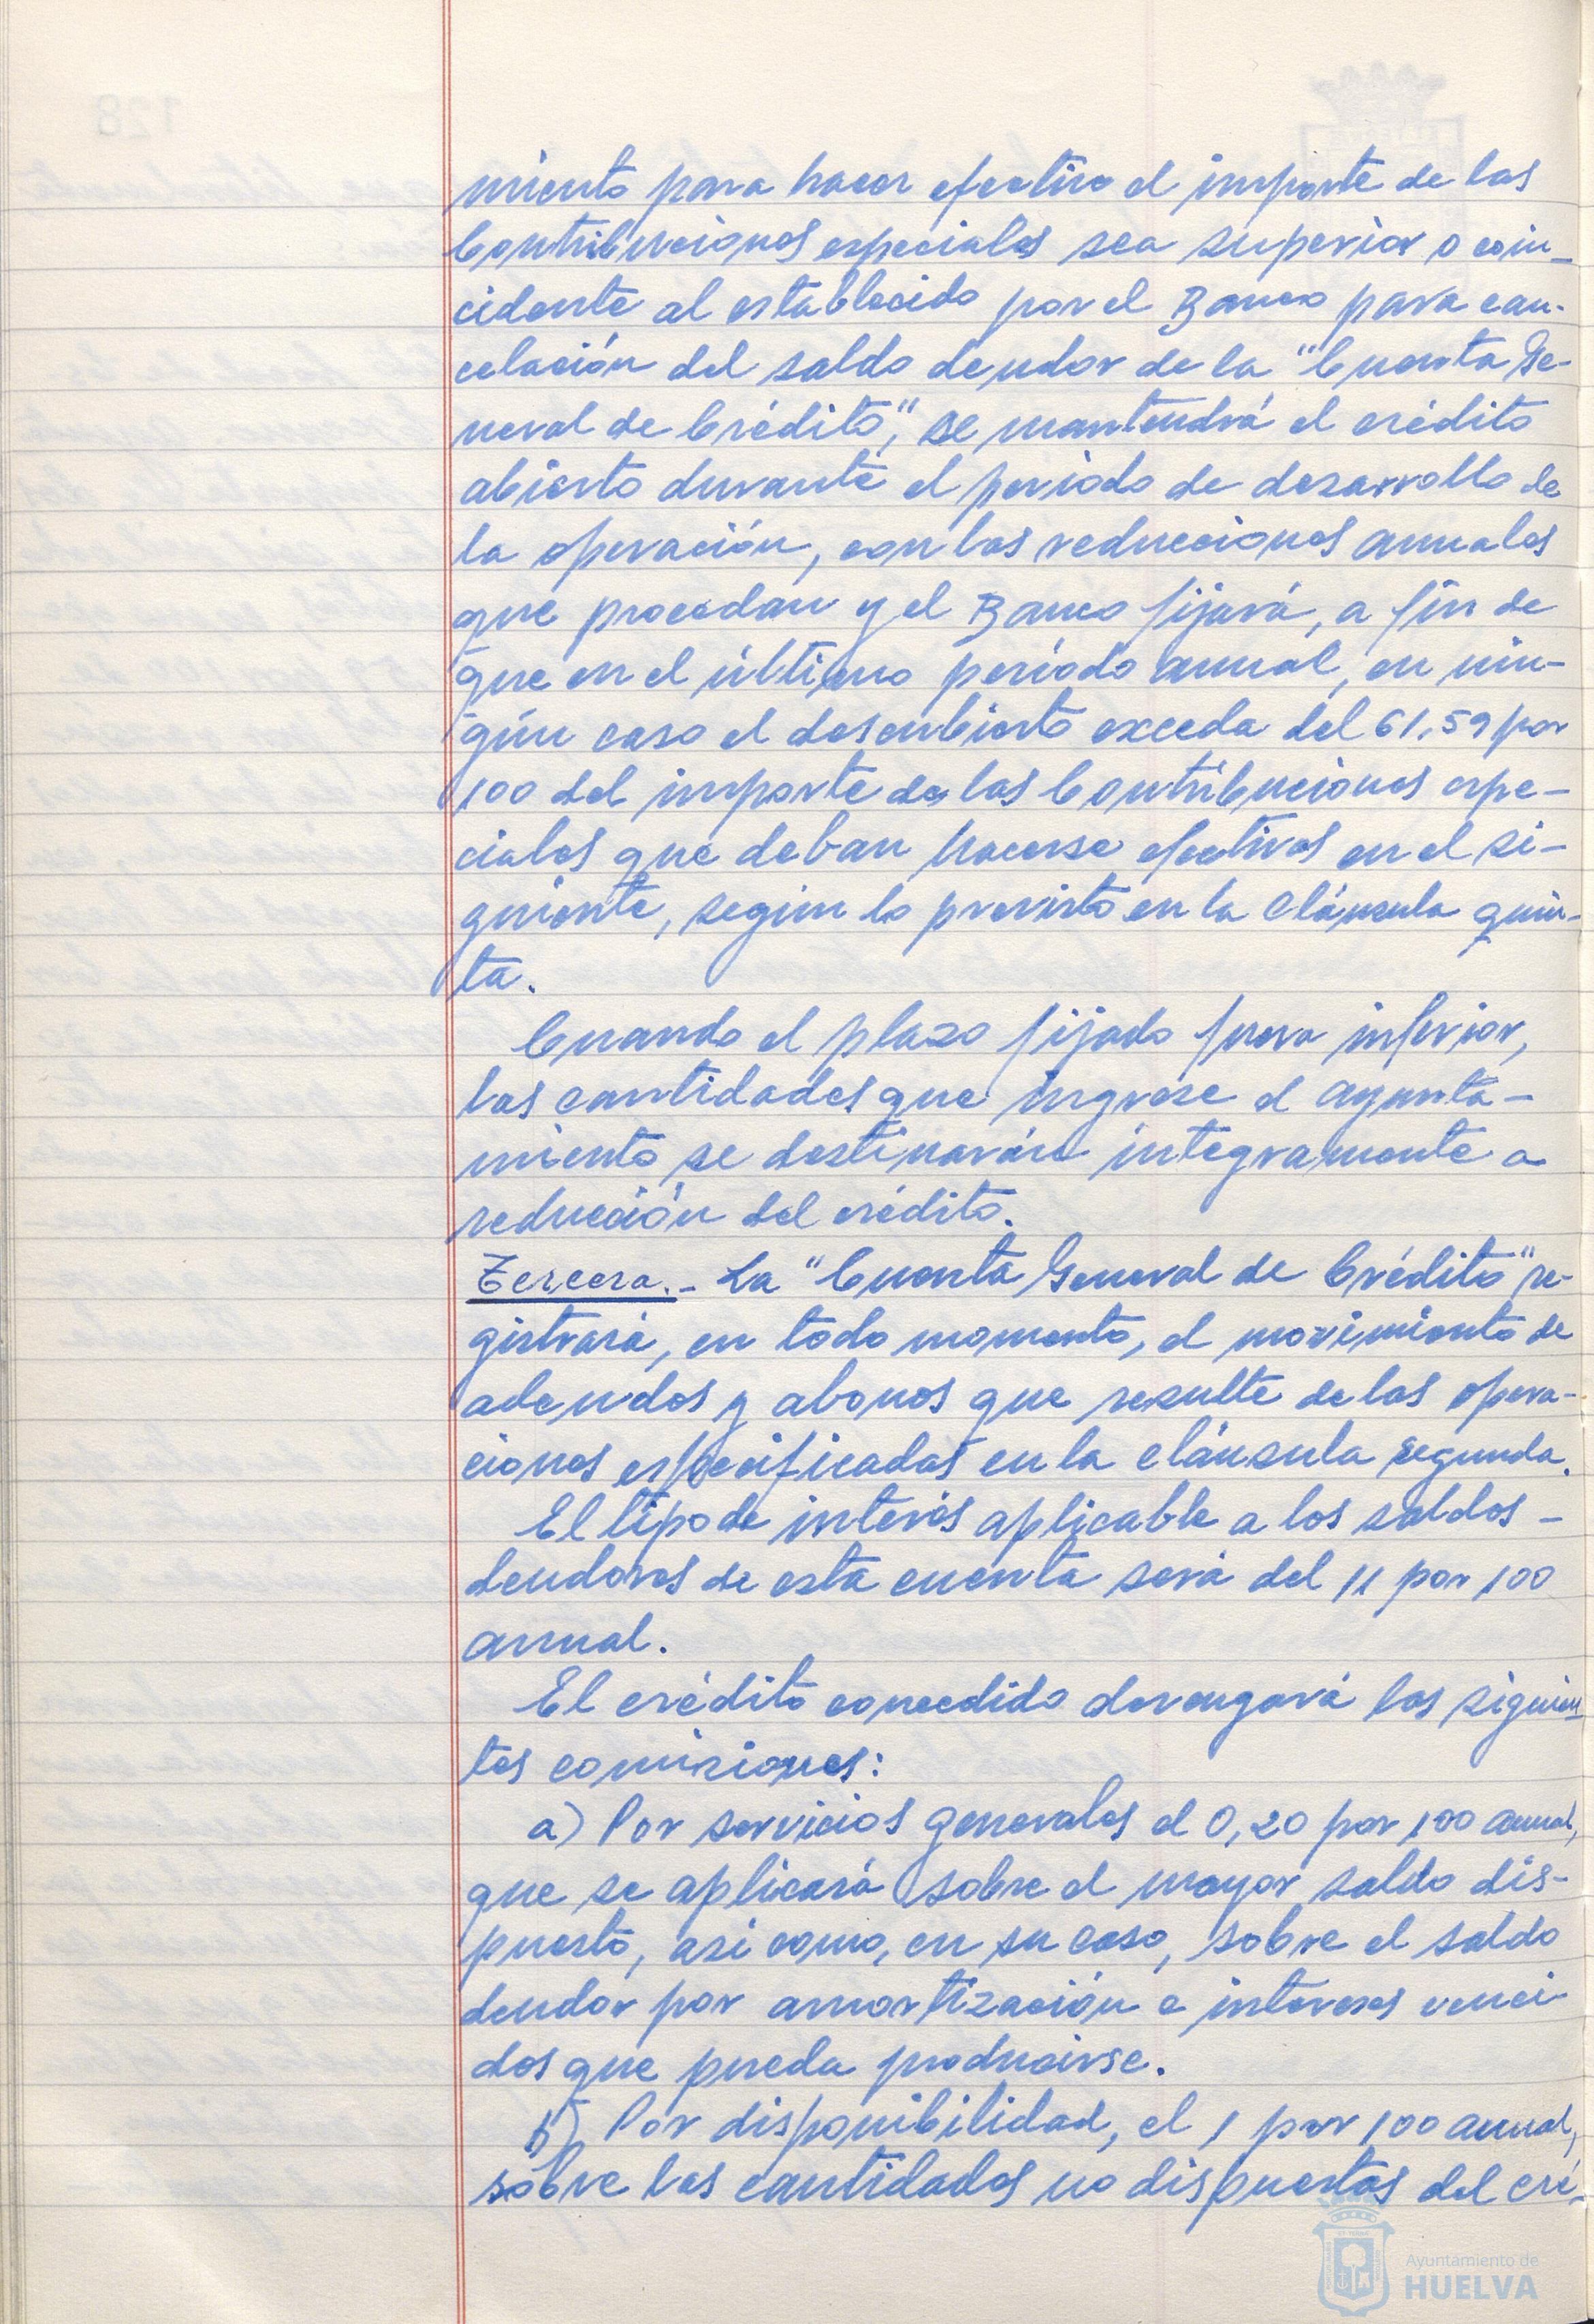 miento para hacer efectivo el importe de las
Contribuciones especiales sea superior o coin-
cidente al establecido por el Banco para can-
celación del saldo deudor de la "Cuenta Ge-
neral de Crédito", se mantendrá el crédito
abierto durante el período de desarrollo de
la operación, con las reducciones anuales
que procedan y el Banco fijará, a fin de
que en el último período anual, en nin-
gún caso el descubierto exceda del 61,59 por
100 del importe de las Contribuciones espe-
ciales que deban hacerse efectivas en el si-
guiente, según lo previsto en la cláusula quin-
ta.
Cuando el plazo fijado fuera inferior,
las cantidades que ingrese el ayunta-
miento se destinarán íntegramente a
reducción del crédito.
Tercera.- La "Cuenta General de Crédito" re-
gistrará, en todo momento, el movimiento de
adeudos y abonos que resulte de las opera-
ciones especificadas en la cláusula segunda.
El tipo de interés aplicable a los saldos -
deudores de esta cuenta será del 11 por 100
annual.
El crédito concedido devengará las siguien-
tes comisiones:
a) Por servicios generales el 0,20 por 100 anual,
que se aplicará sobre el mayor saldo dis-
puesto, así como, en su caso, sobre el saldo
deudor por amortización e intereses venci
dos que pueda producirse.
b) Por disponibilidad, el 1 por 100 anual,
sobre las cantidades no dispuestas del cré-
Ayuntamiento de
HUELVA
128